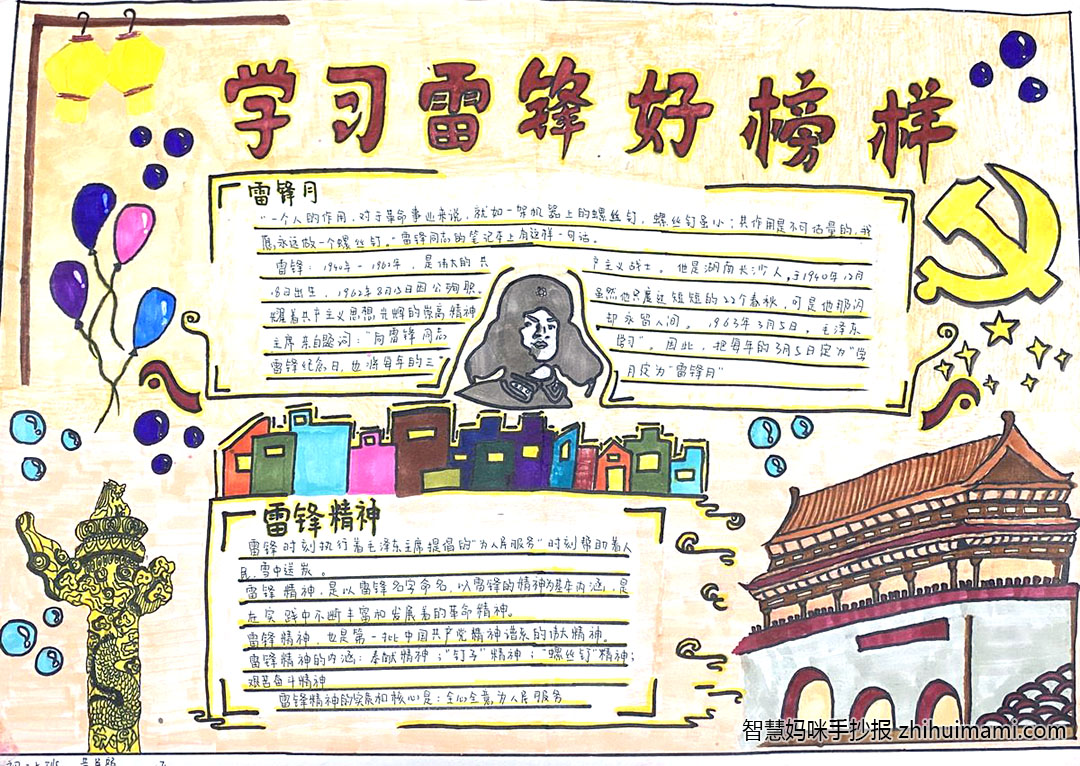 学习雷锋好榜样
雷锋月
"一个人的作用,对于革命事业来说,就如一架机器上的螺丝钉。螺丝钉虽小;其作用是不可估量的,我
愿永远做一个螺丝钉。"雷锋同志的笔记本上有这样一句话。
雷锋:1940年-1962年,是伟大的共产主义战士。他是湖南长沙人,于1940年12月
18日出生,1962年8月15日因公殉职。虽然他只度过短短的22个春秋,可是他那闪
耀着共产主义思想光辉的崇高精神却永留人间。1963年3月5日,毛泽东
主席亲自题词:"向雷锋同志学习"。因此,把每年的3月5日定为"学
雷锋纪念日,也将每年的三月定为"雷锋月"
雷锋精神
雷锋时刻执行着毛泽东主席提倡的"为人民服务"时刻帮助着人
民,雪中送炭。
雷锋精神,是以雷锋名字命名,以雷锋的精神为基本内涵,是
在实践中不断丰富和发展着的革命精神。
雷锋精神,也是第一批中国共产党精神谱系的伟大精神。
雷锋精神的内涵:奉献精神;"钉子"精神;"螺丝钉"精神;
艰苦奋斗精神
雷锋精神的实质和核心是:全心全意为人民服务
智慧妈咪手抄报 zhihuimami.com